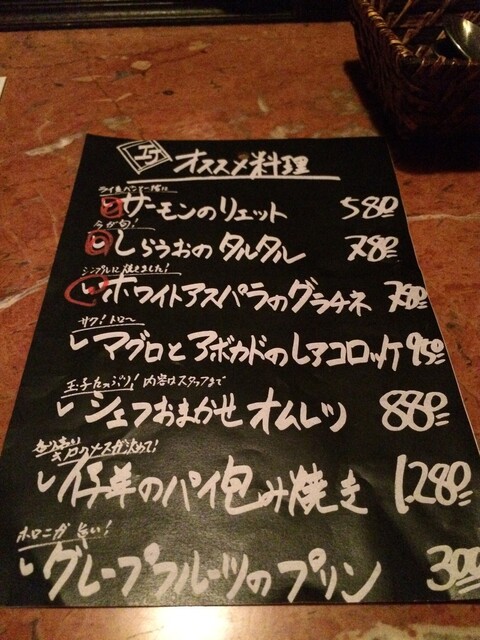 オススメ料理
ライ麦パンと一緒に
サーモンのリエット 580
今が旬!
しらうおのタルタル 780
シンプルに焼きました!
ホワイトアスパラのグラチネ 780
サク!トロ〜
マグロとアボカドのレアコロッケ 950
玉子たっぷり! 内容はスタッフまで
シェフおまかせオムレツ 880
仔羊のパイ包み焼き 1280
ホロニガ 旨い!
グレープフルーツのプリン 300